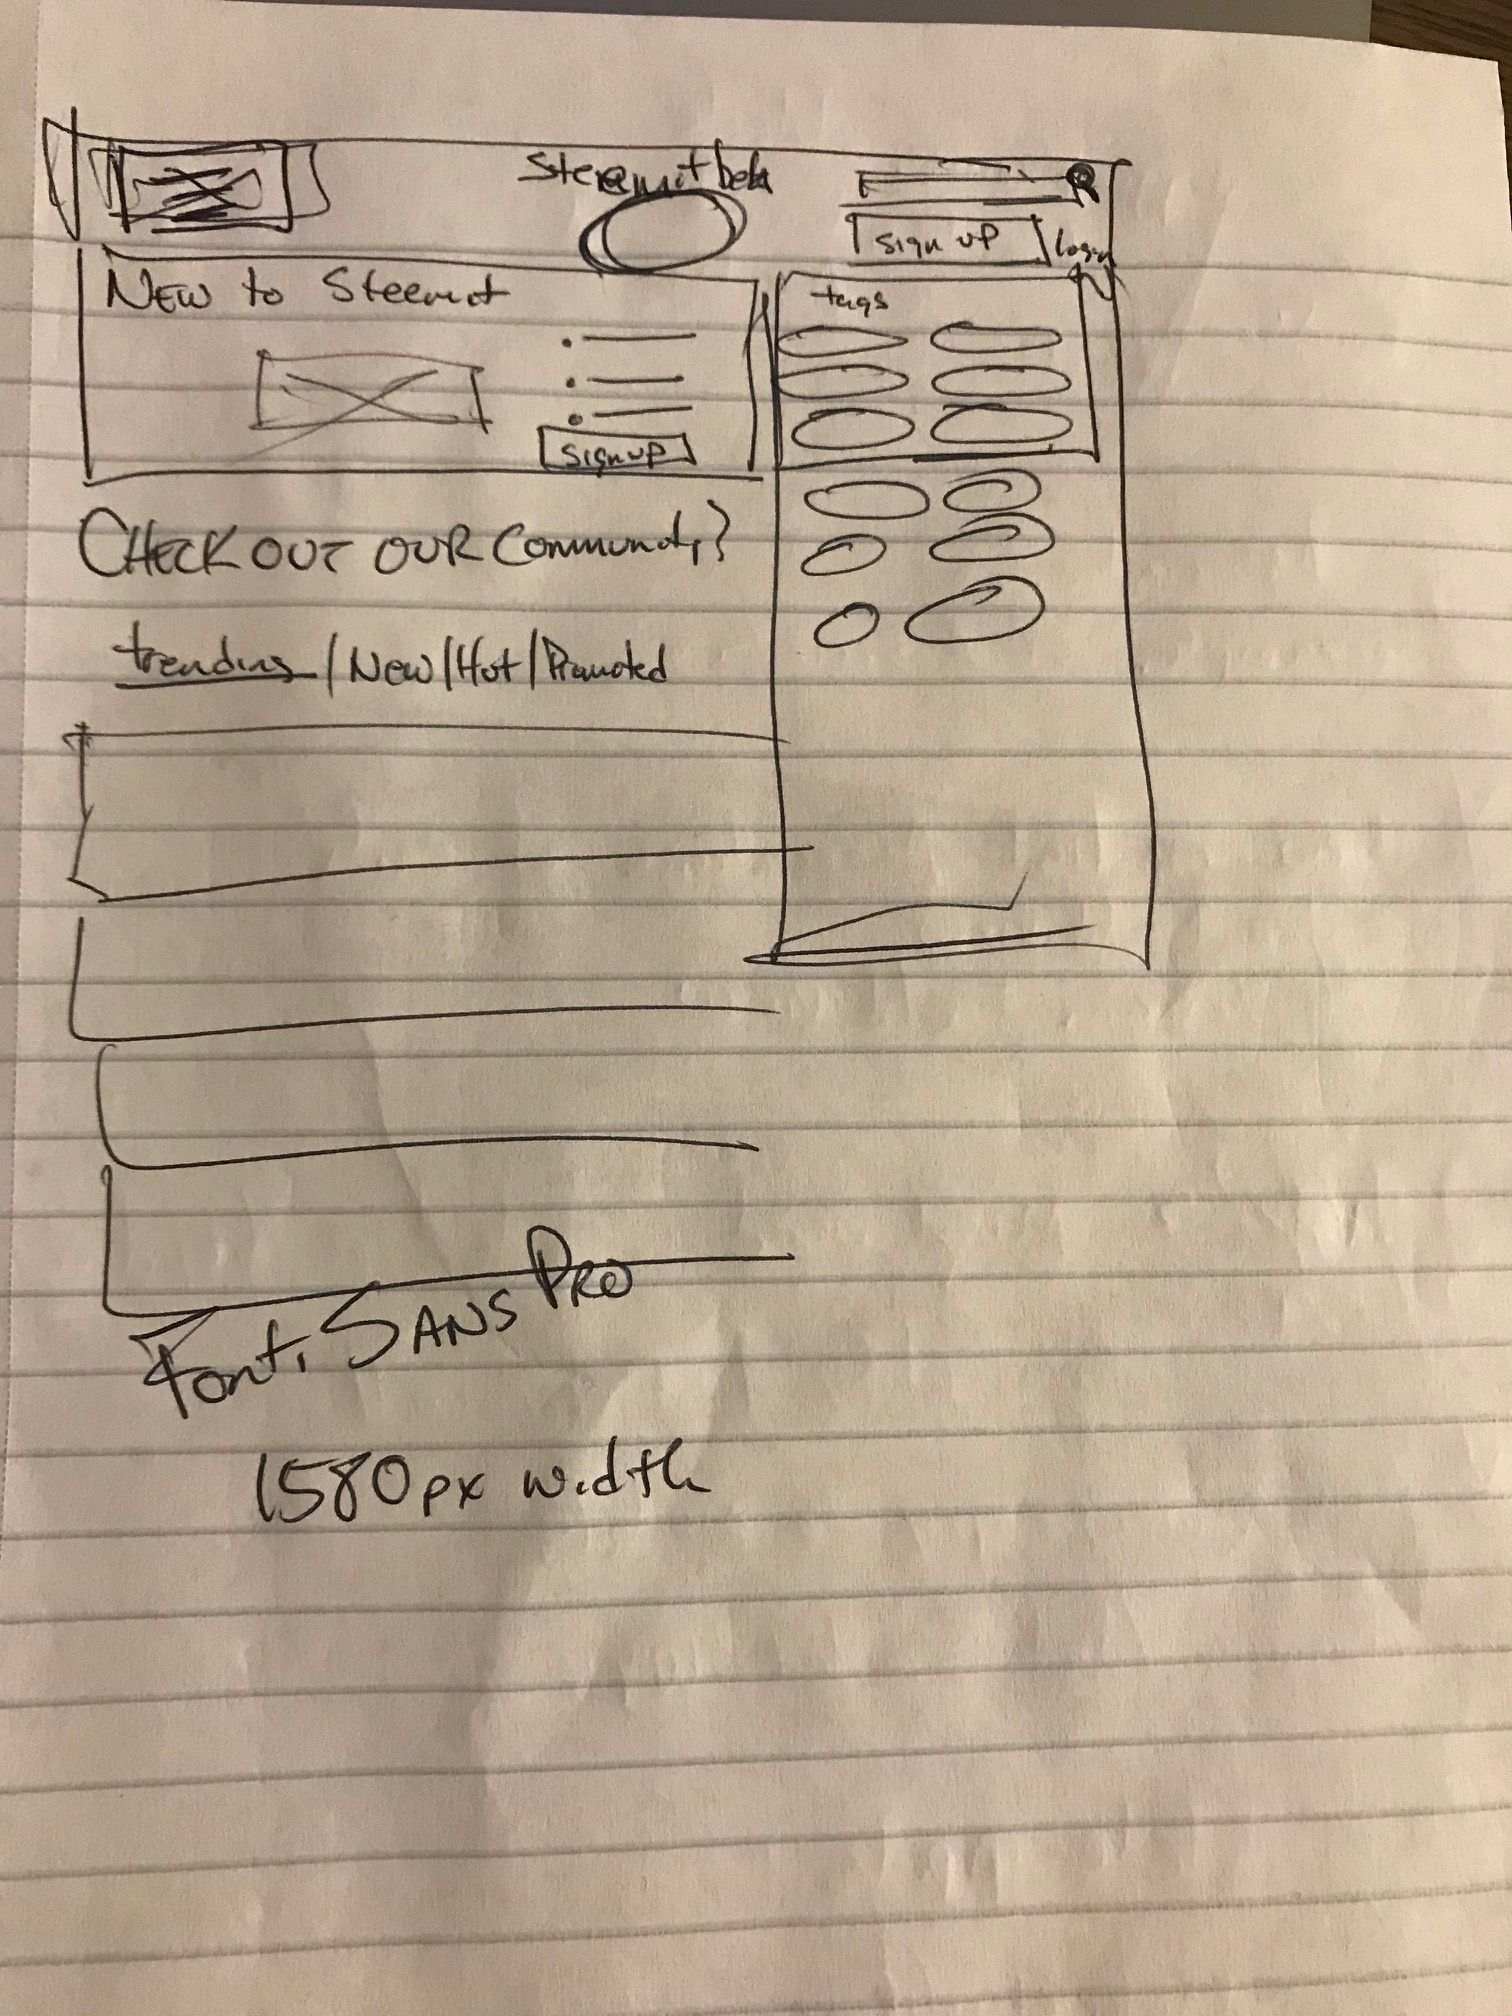 Steemit beta
Sign up Login
New to Steemit
tags
Sign up
CHECK OUT OUR Community?
trending / New / Hot / Promoted
Font, SANS PRO
1580px width